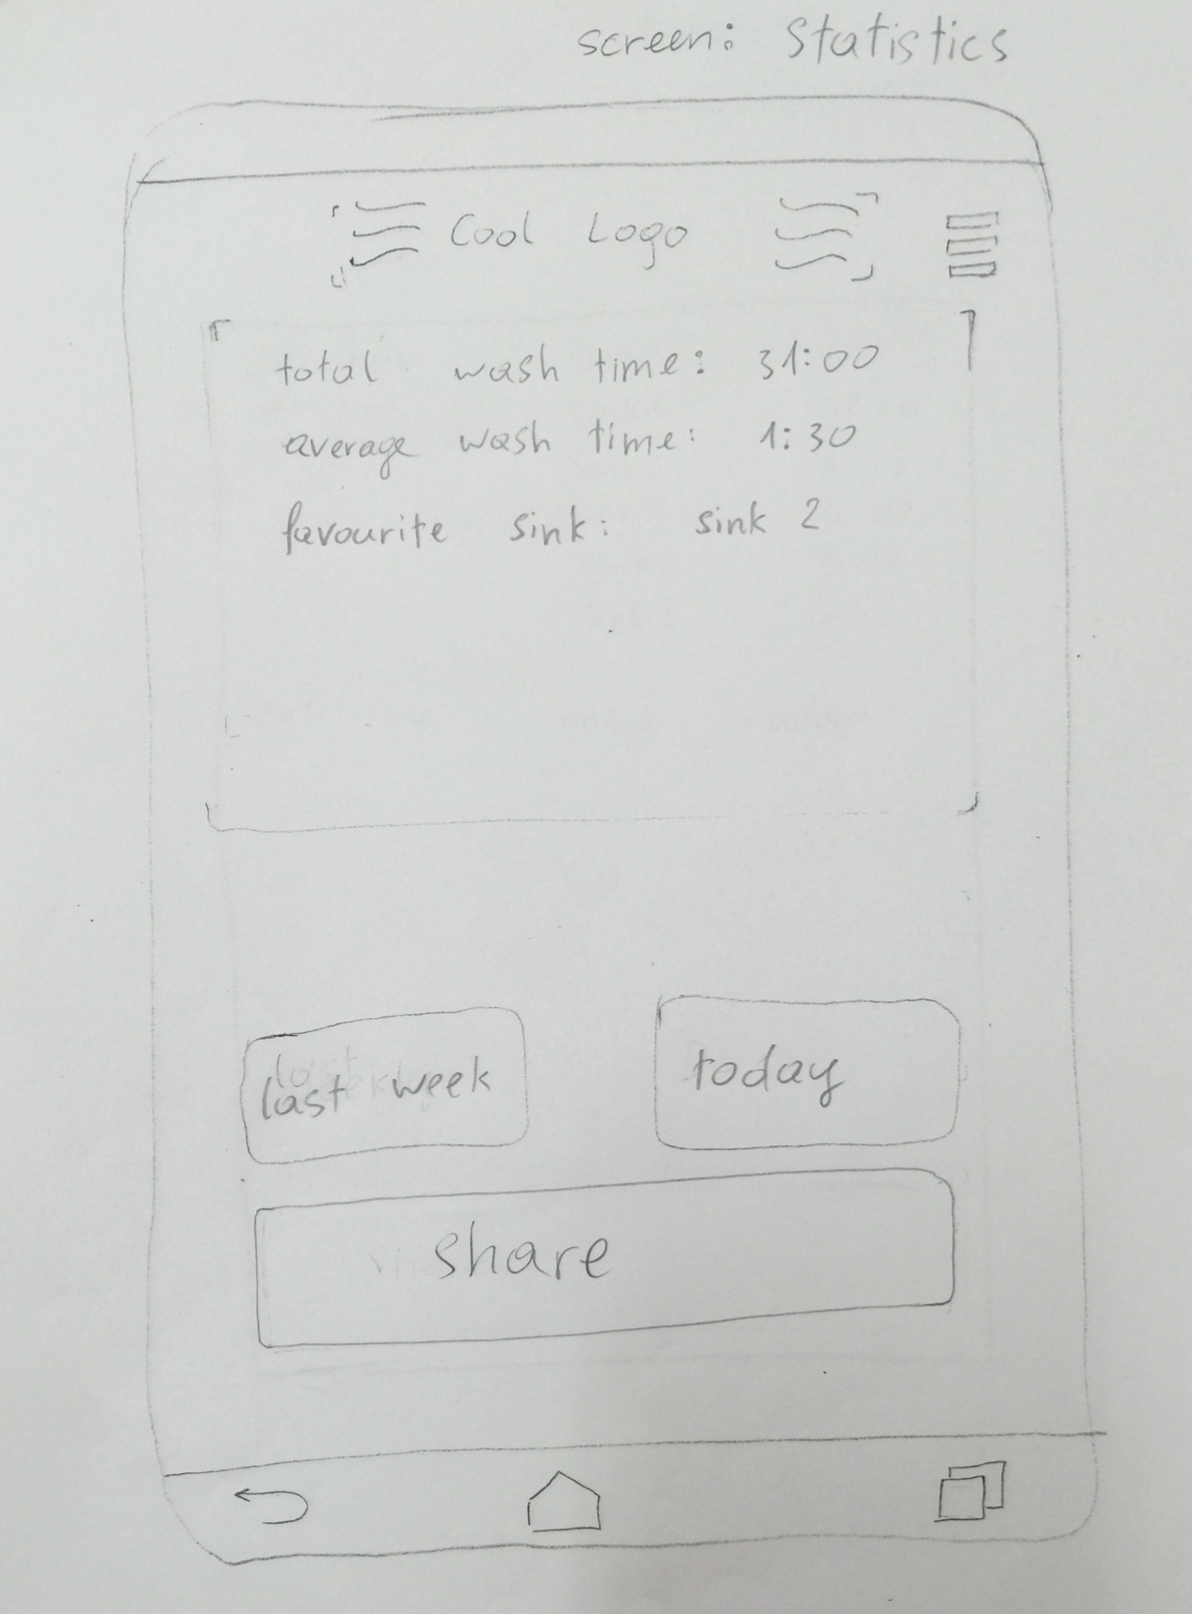 screen: Statistics
Cool Logo
total wash time: 31:00
average wash time: 1:30
favourite sink: sink 2
last week
today
share